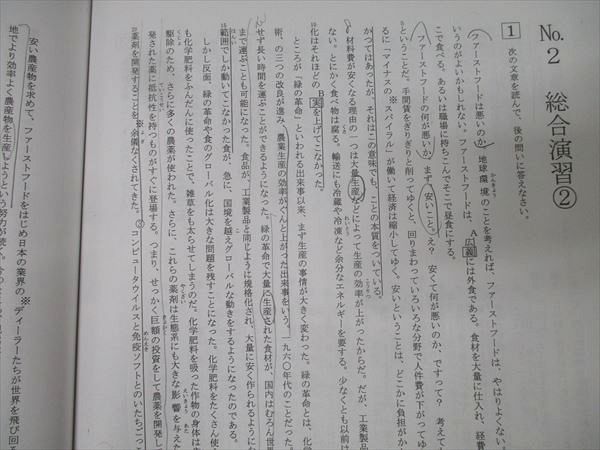 No.2 総合演習②
1 次の文章を読んで、後の問いに答えなさい。
ファーストフードは悪いのか。地球環境のことを考えれば、ファーストフードは、やはりよくない。
いうのがよいかもしれない。ファーストフードは、A広義には外食である。食材を大量に仕入れ、経費
こで食べる。あるいは職場に持ちこんでそこで昼食にする。
ファーストフードの何が悪いか。まず「安いこと」。え？ 安くて何が悪いのか、ですって？ 考えて
さということだ。手間賃をぎりぎりと削ってゆくと、回りまわっていろいろな分野で人件費が下がってゆ
るに「マイナスの※スパイラル」が働いて経済は縮小してゆく。安いということは、どこかに負担がか
かつてはあったが、それはこの意味でも、ことの本質をついている。
材料費が安くなる理由の一つは大量生産などによって生産の効率が上がったからだ。だが、工業製品
ない。とにかく食べ物は腐る。輸送にも冷蔵や冷凍など余分なエネルギーを要する。少なくとも以前は
10 化はそれほどのB実を上げてこなかった。
ところが「緑の革命」といわれる出来事以来、まず生産の事情が大きく変わった。緑の革命とは、化学
術、の三つの改良が進み、農業生産の効率がぐんと上がった出来事をいう。一九六〇年代のことだった。
せず長い時間を運ぶことができるようになった。緑の革命で大量に生産された食材が、国内はむろん世界
まで運ぶことも可能になった。食品が、工業製品と同じように規格化され、大量に安く作られるようにな
15 範囲でしか動いてこなかった食が、急に、国境を越えグローバルな動きをするようになったのである。
しかし反面、緑の革命や食のグローバル化は大きな問題を残すことになった。化学肥料をたくさん使
も化学肥料をふんだんに使ったことで、雑草をも太らせてしまうのだ。化学肥料を吸った作物の身体は
駆除のため、さらに多くの農薬が使われた。さらに、これらの薬剤は生態系にも大きな影響を与えた
発された薬に抵抗性を持つものがすぐに登場する。つまり、せっかく巨額の投資をして農薬を開発し
20 薬剤を開発することを、※余儀なくされてきた。②コンピュータウイルスと免疫ソフトとのいたちごっこ
安い農産物を求めて、ファーストフードをはじめ日本の業界の※ディーラーたちが世界を飛び回る
地でより効率よく農産物を生産しようという努力が続く。